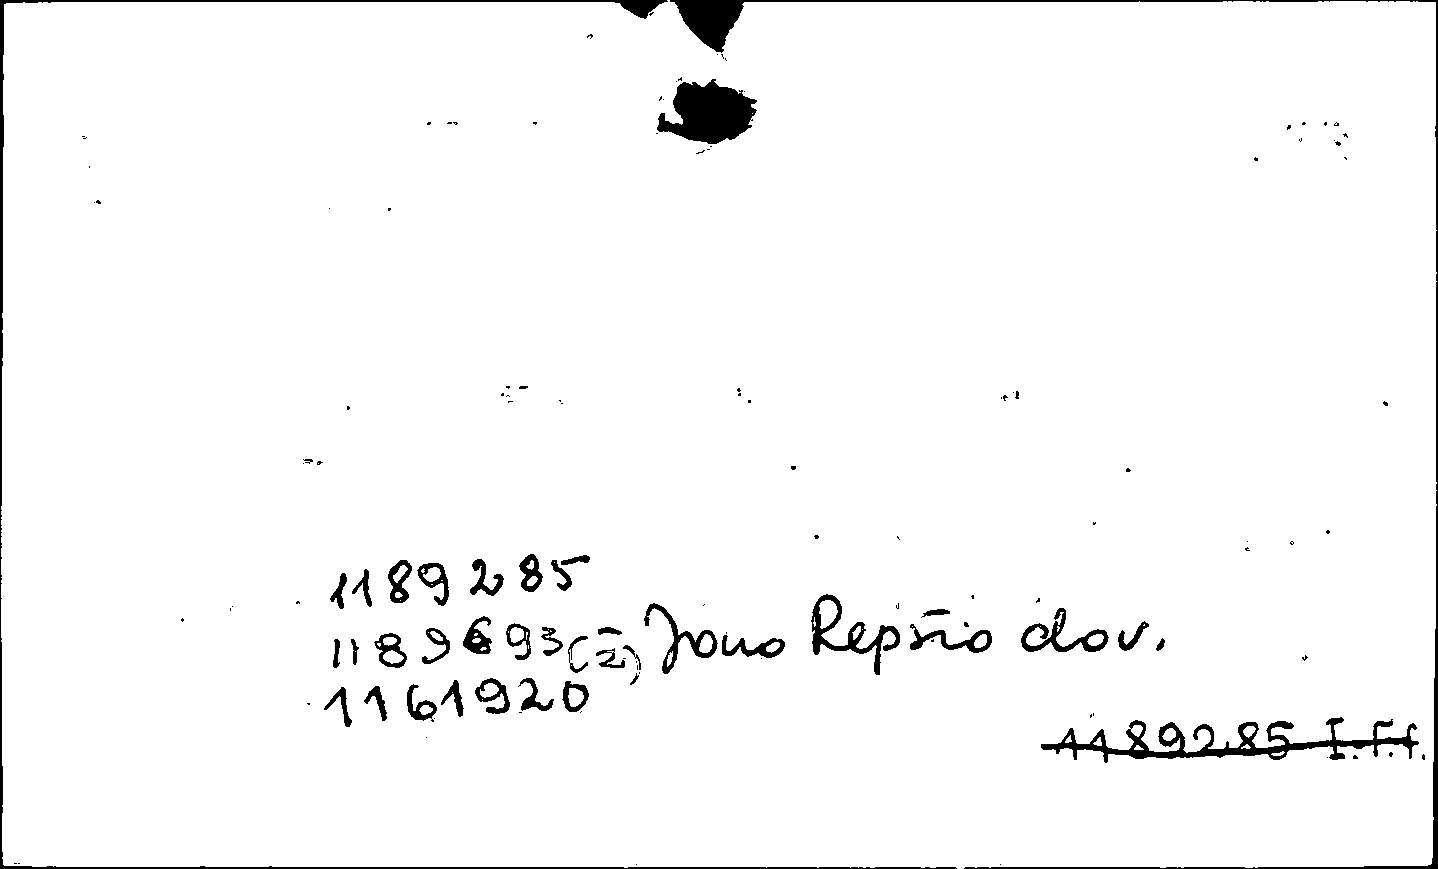 1189285
1189693 (2) Jono Repšio dov.
1161920
1189285 I. f. f.